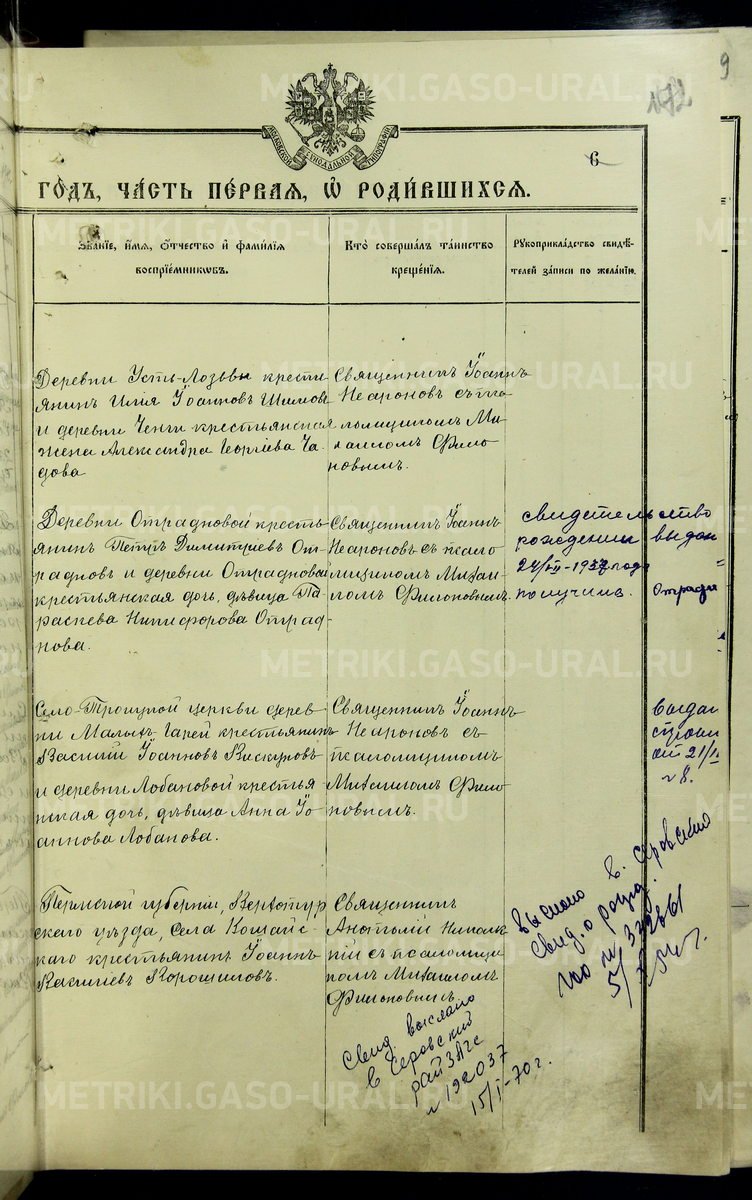 9
172
МОСКОВСКОЙ СѴНОДАЛЬНОЙ ТИПОГРАФІИ
6
ГОДЪ, ЧАСТЬ ПЕРВАЯ, Ѿ РОДИВШИХСЯ.
Званіе, имя, отчество и фамилія
воспріемниковъ.
Кто совершалъ таинство
крещенія.
Рукоприкладство свидѣ-
телей записи по желанію.
Деревни Усть-Лозьвы крестья
янинъ Илія Іоанновъ
и деревни Ченги крестьянская
жена Александра Георгіева Ча-
дова
Священникъ Іоаннъ
Неароновъ съ пса-
ломщикомъ Ми-
хаиломъ Фило-
новымъ.
Деревни Отрадновой кресть-
янинъ Петръ Димитріевъ От-
радновъ и деревни Отрадновой
крестьянская дочь, дѣвица Па-
раскева Никифорова Отрад-
нова.
Священникъ Іоаннъ
Неароновъ съ псало
мщикомъ Михаи-
ломъ Филоновымъ.
свидетельство
рождении выдан
года
получила. Отрадн
Село-Троицкой церкви дерев-
ни Малыхъ Гарей крестьянинъ
Василій Іоанновъ Вискуновъ
и деревни Лобановой крестья
нская дочь, дѣвица Анна Іо-
аннова Лобанова.
Священникъ Іоаннъ
Неароновъ съ
псаломщикомъ
Михаиломъ Фило
новымъ.
выдан
21/
Пермской губерніи, Верхотур
скаго уѣзда, села Кошайс-
каго крестьянинъ Іоаннъ
Хорошиловъ.
Священникъ
Анатолій
съ псаломщи
комъ Михаиломъ
Филоновымъ
выслано в. Серовско
Свид. о рожд.
№ 332861
5/
Свид. выслано
в Серовский
райЗАГС
№ 192037
15/I-70 г.
METRIKI.GASO-URAL.RU
METRIKI.GASO-URAL.RU
METRIKI.GASO-URAL.RU
METRIKI.GASO-URAL.RU
METRIKI.GASO-URAL.RU